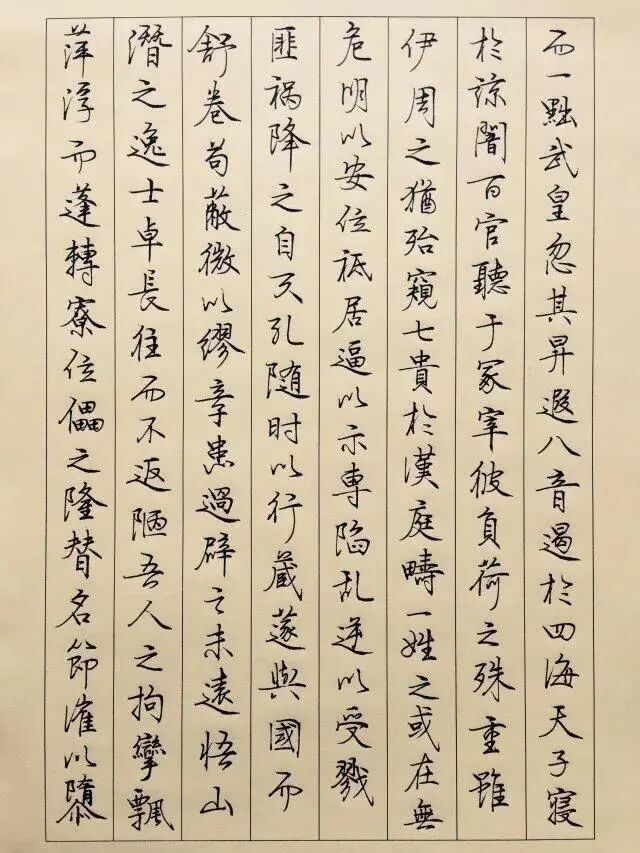 而一黜武皇忽其昇遐八音遏於四海天子寝
於諒闇百官聽于冢宰彼負荷之殊重雖
伊周之猶殆窺七貴於漢庭疇一姓之或在無
危明以安位祗居逼以示專陷乱逆以受戮
匪祸降之自天孔随时以行蔵蘧與國而
舒卷苟蔽微以繆章患過辟之未遠悟山
潛之逸士卓長往而不返陋吾人之拘攣飄
萍浮而蓬轉寮位儡之隆替名節漼以隳